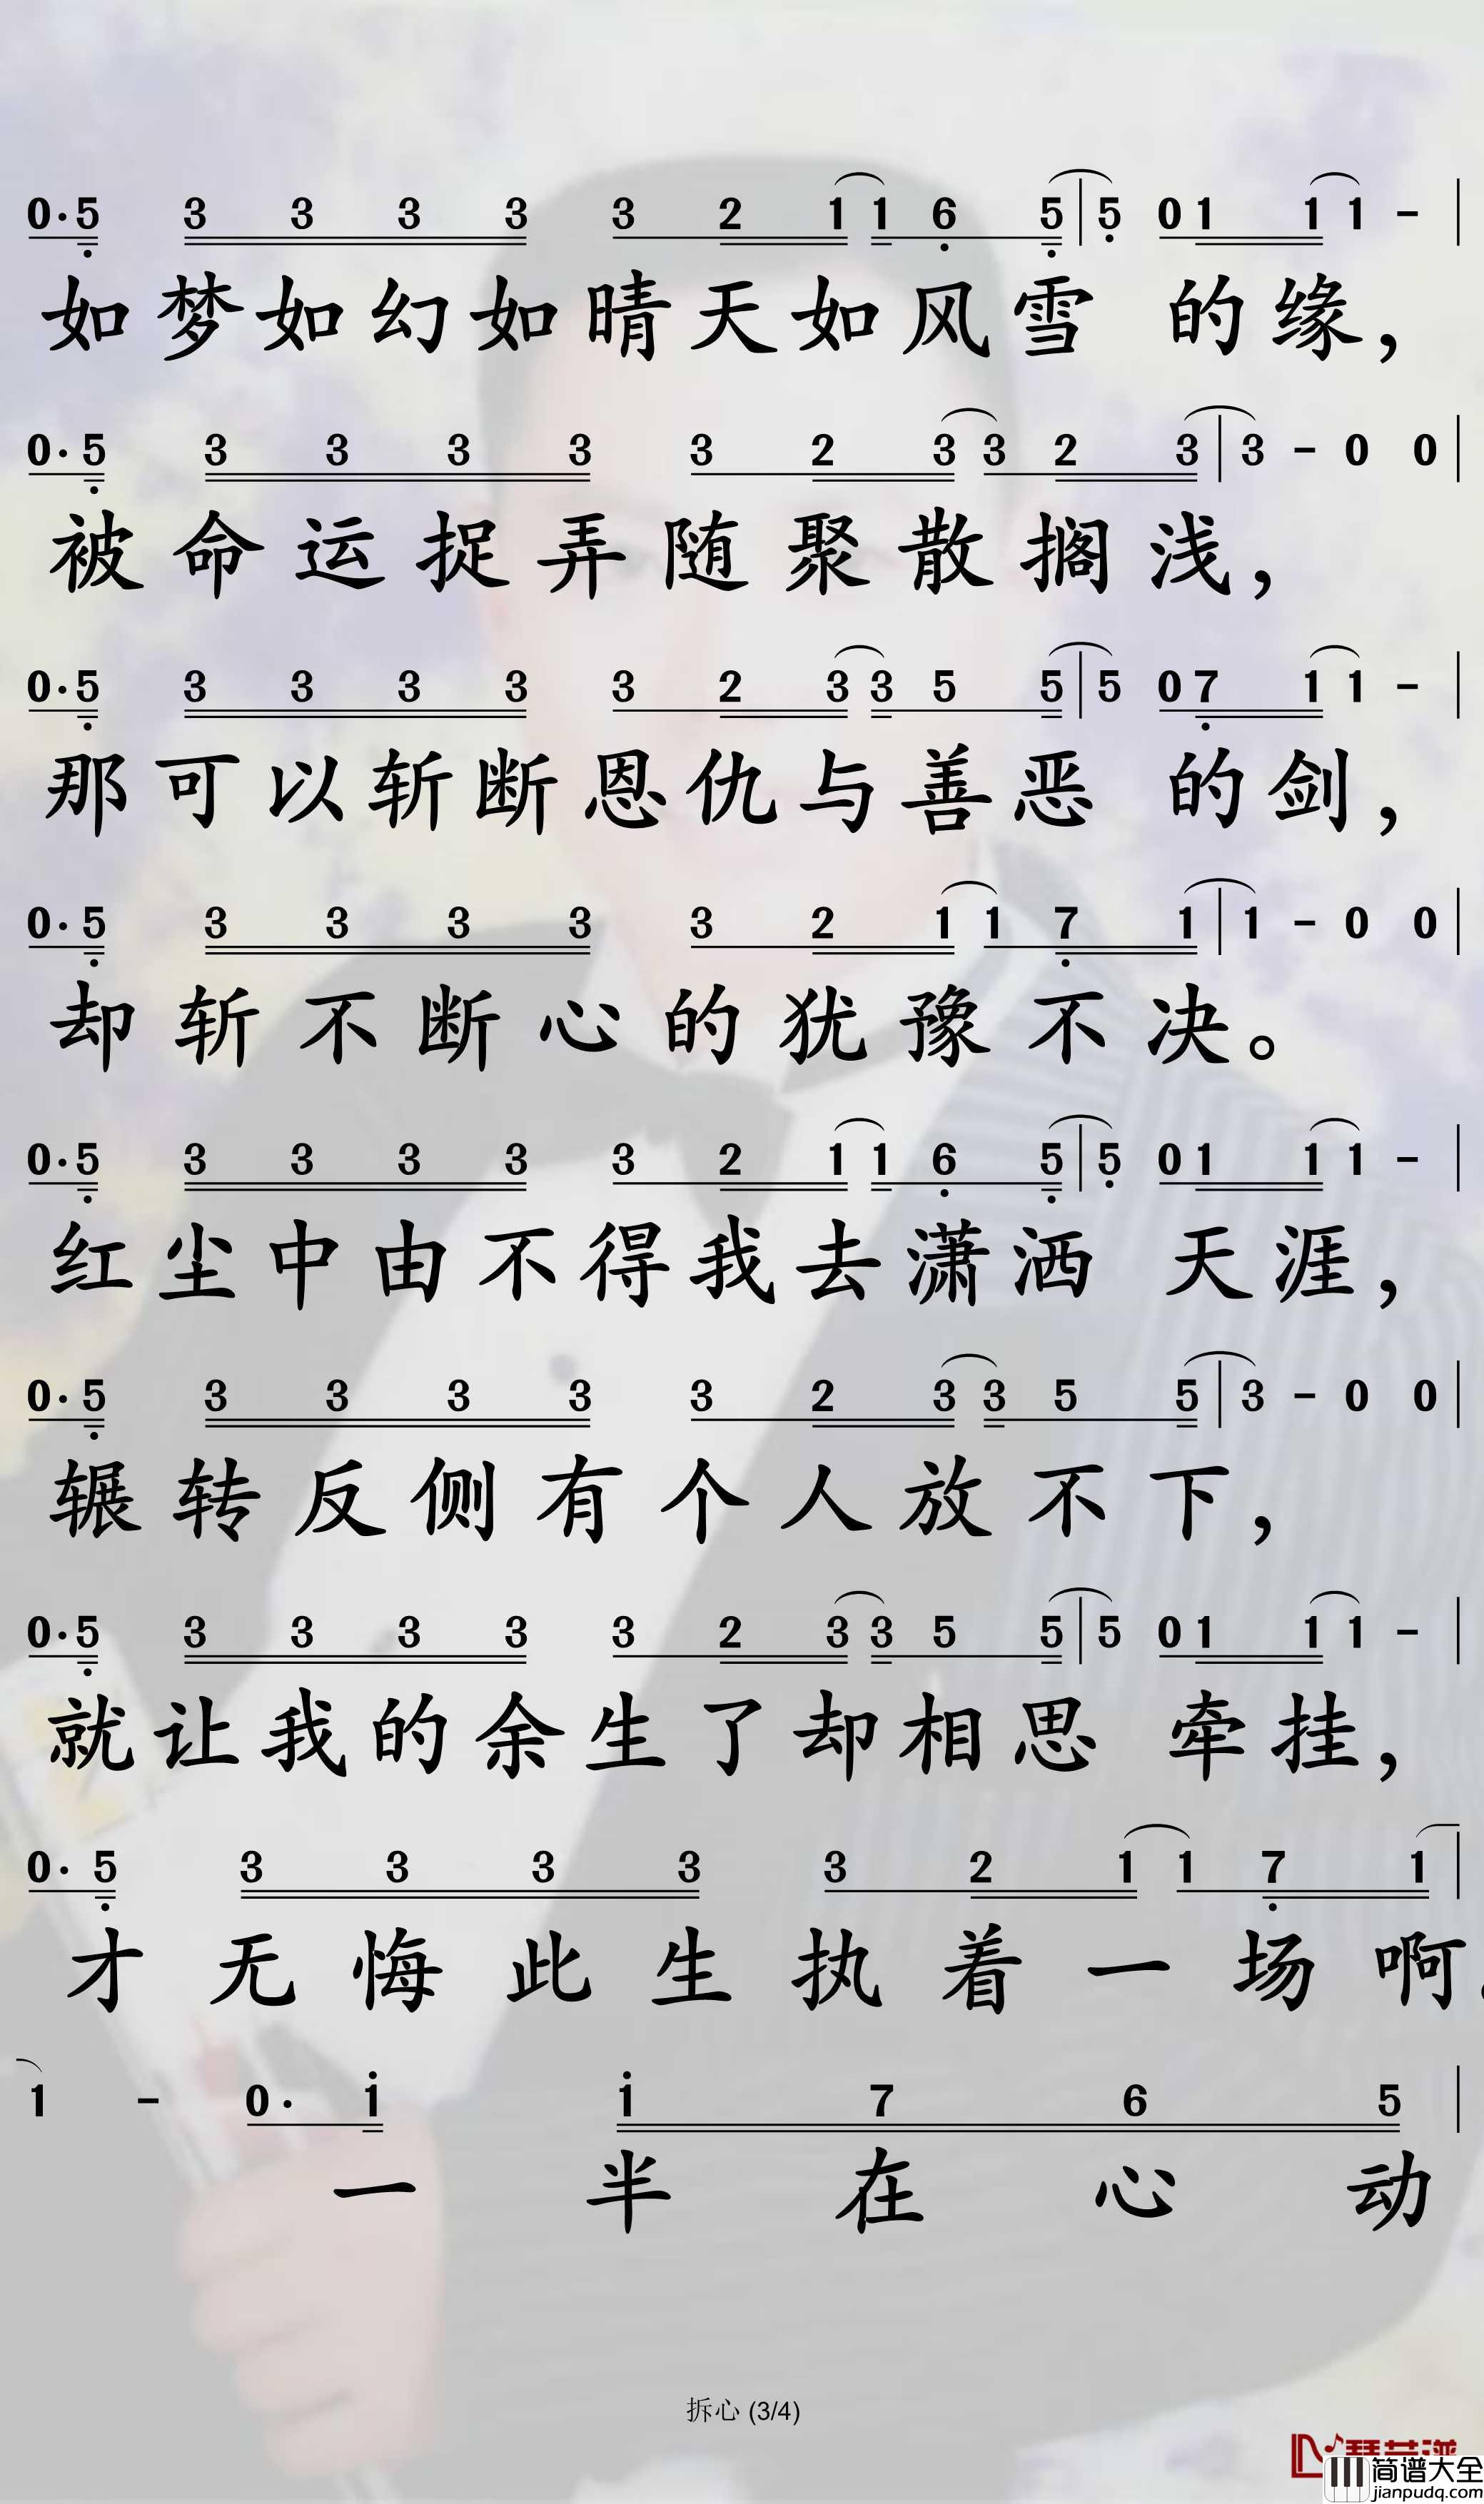 0·5 3 3 3 3 3 2 1 1 6 5|5 0 1 1 1 -|
如梦如幻如晴天如风雪 的缘，
0·5 3 3 3 3 3 2 3 3 2 3|3 - 0 0|
被命运捉弄随聚散搁浅，
0·5 3 3 3 3 3 2 3 3 5 5|5 0 7 1 1 -|
那可以斩断恩仇与善恶 的剑，
0·5 3 3 3 3 3 2 1 1 7 1|1 - 0 0|
却斩不断心的犹豫不决。
0·5 3 3 3 3 3 2 1 1 6 5|5 0 1 1 1 -|
红尘中由不得我去潇洒 天涯，
0·5 3 3 3 3 3 2 3 3 5 5|3 - 0 0|
辗转反侧有个人放不下，
0·5 3 3 3 3 3 2 3 3 5 5|5 0 1 1 1 -|
就让我的余生了却相思 牵挂，
0·5 3 3 3 3 3 2 1 1 7 1|
才无悔此生执着一场啊。
1 - 0·1 1 7 6 5|
一半在心动
拆心 (3/4)
简谱大全
jianpudq.com